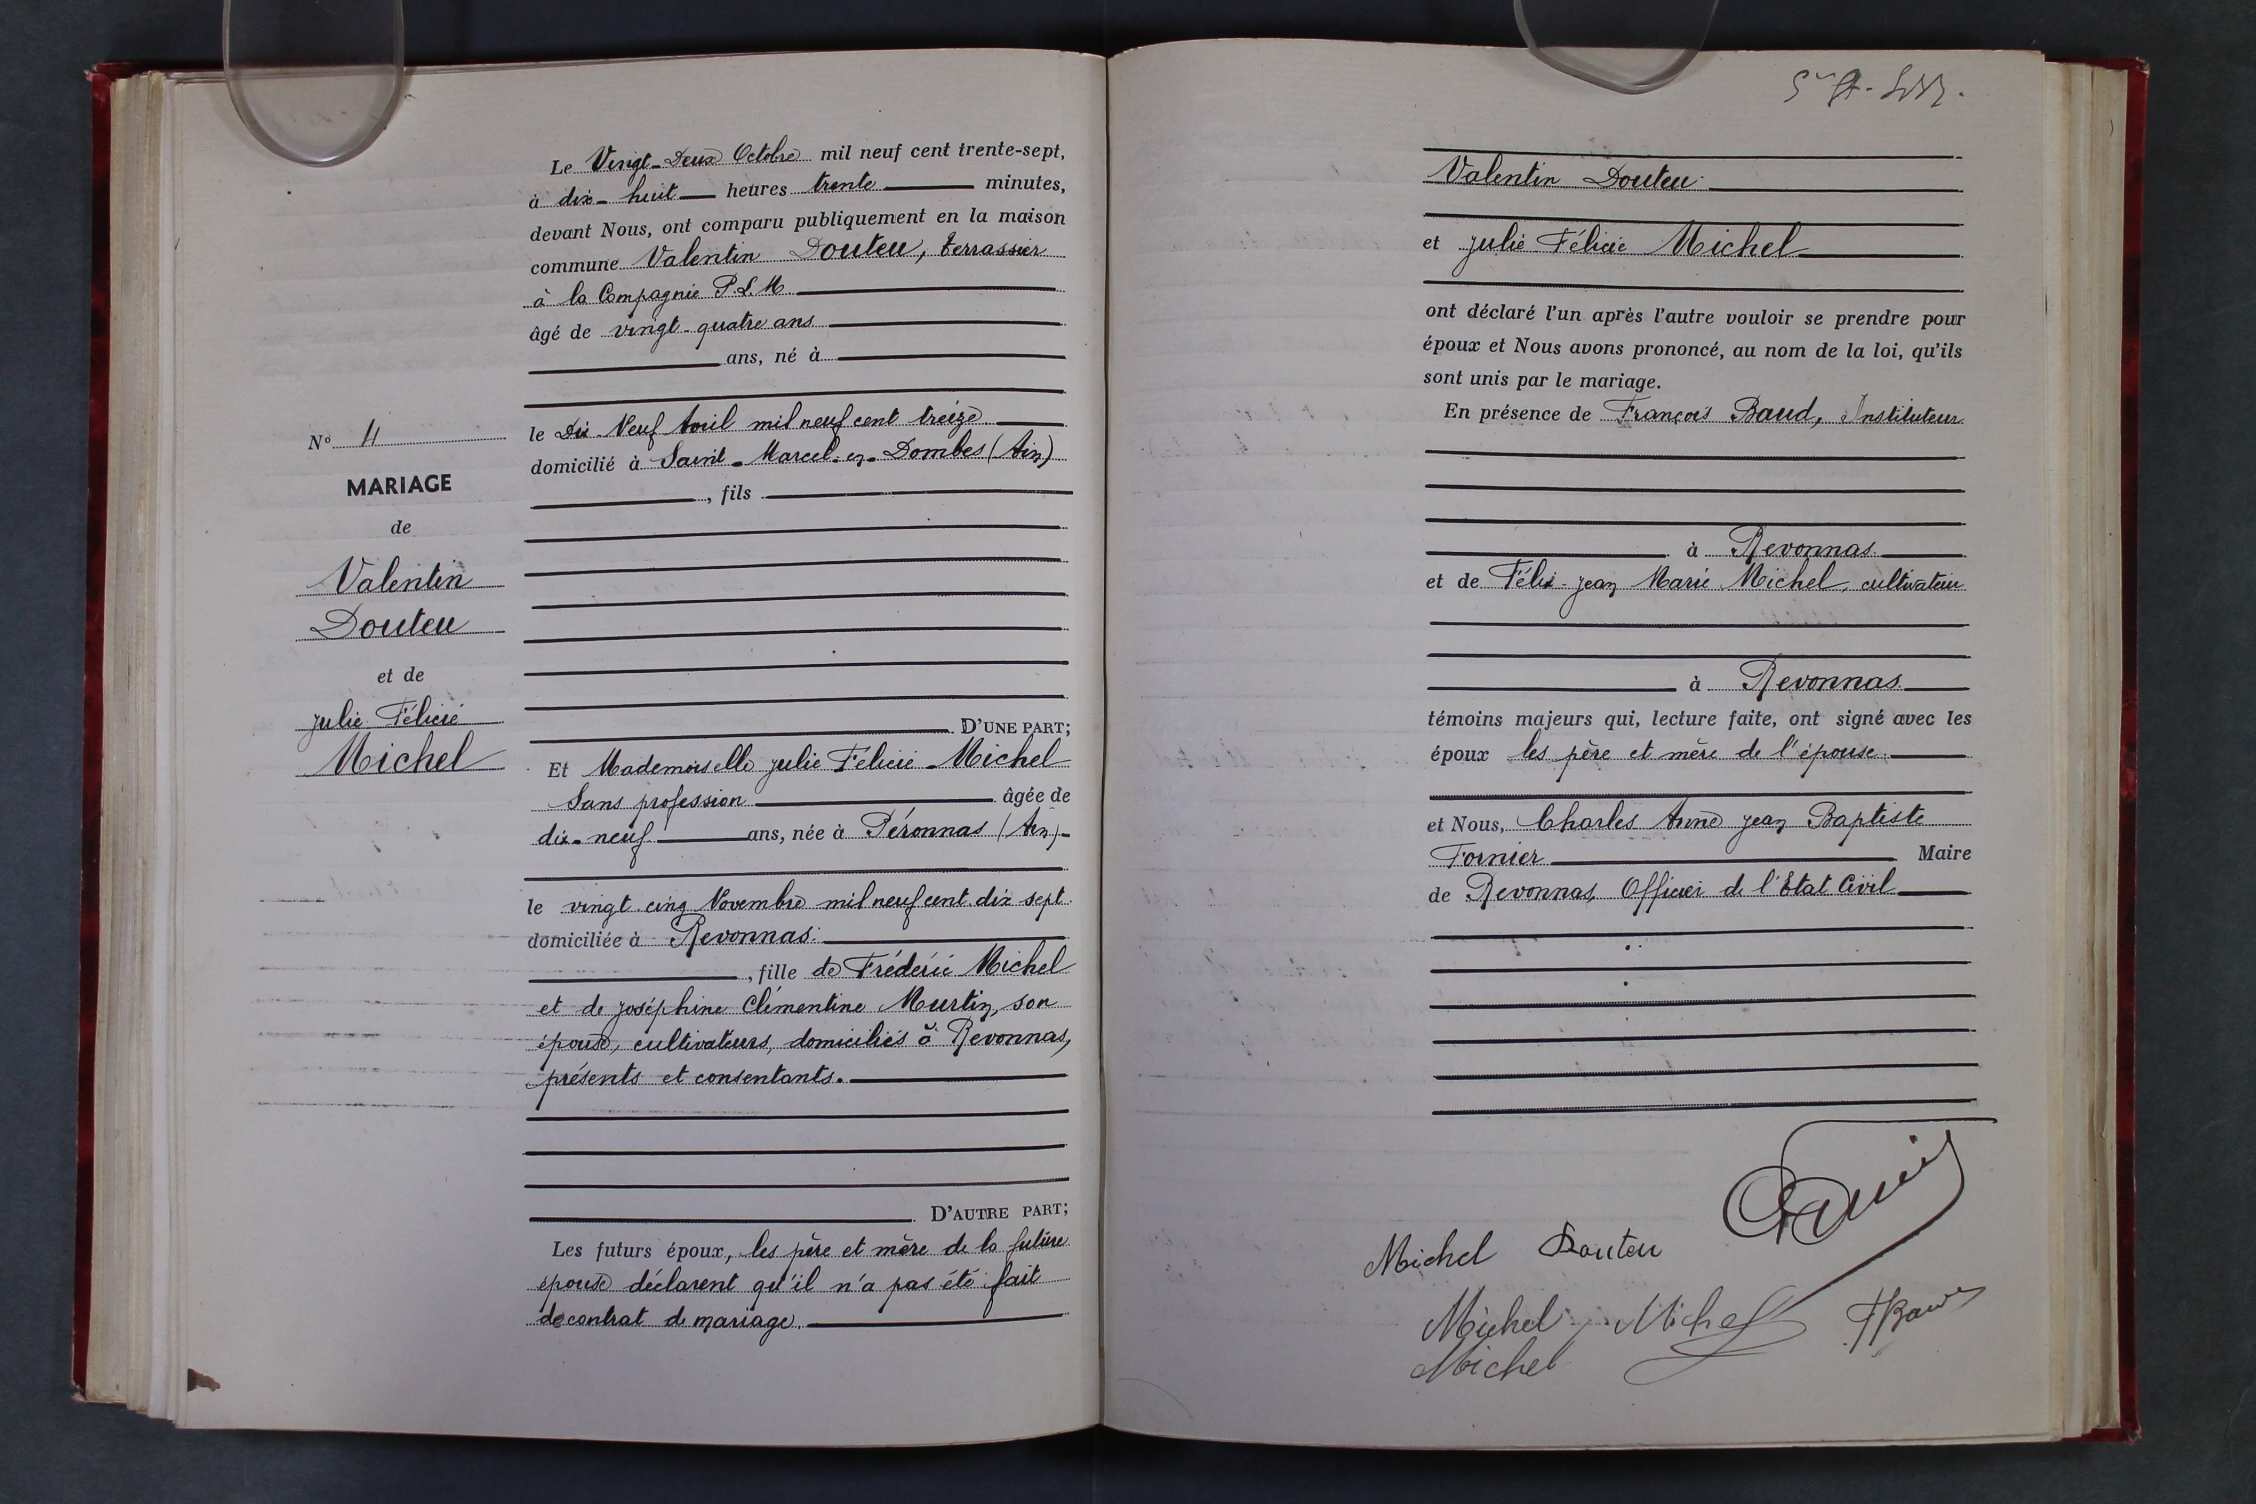 Le Vingt-Deux Octobre mil neuf cent trente-sept,
à dix-huit heures trente minutes,
devant Nous, ont comparu publiquement en la maison
commune Valentin Douteu, terrassier
à la Compagnie P.L.M
âgé de vingt-quatre ans
ans, né à
le Dix-Neuf Avril mil neuf cent treize
domicilié à Saint-Marcel-en-Dombes (Ain)
, fils
D'UNE PART;
Et Mademoiselle Julie Félicie Michel
Sans profession âgée de
dix-neuf ans, née à Péronnas (Ain)
le vingt cinq Novembre mil neuf cent dix sept
domiciliée à Revonnas
, fille de Frédéric Michel
et de Joséphine Clémentine Murtin, son
épouse, cultivateurs, domiciliés à Revonnas,
présents et consentants.
D'AUTRE PART;
Les futurs époux, les père et mère de la future
épouse déclarent qu'il n'a pas été fait
de contrat de mariage.
N° 4
MARIAGE
de
Valentin
Douteu
et de
Julie Félicie
Michel
Valentin Douteu
et Julie Félicie Michel
ont déclaré l'un après l'autre vouloir se prendre pour
époux et Nous avons prononcé, au nom de la loi, qu'ils
sont unis par le mariage.
En présence de François Baud, Instituteur
à Revonnas
et de Félix Jean Marie Michel, cultivateur
à Revonnas
témoins majeurs qui, lecture faite, ont signé avec les
époux les père et mère de l'épouse.
et Nous, Charles Aimé Jean Baptiste
Fornier Maire
de Revonnas, Officier de l'Etat Civil
Michel Douteu
Michel Michel FBaud
Michel